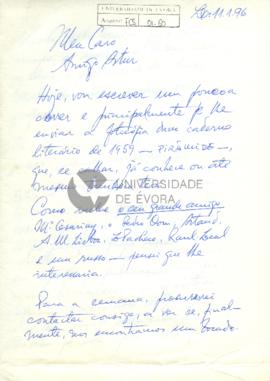 UNIVERSIDADE DE ÉVORA
Lx. 11.1.96
Meu Caro
Amigo Artur
Hoje, vou escrever um pouco a
correr e principalmente p. lhe
enviar a fotocópia dum caderno
literário de 1959 — PIRÂMIDE —,
que, se calhar, já conhece ou até
mesmo
UNIVERSIDADE
DE ÉVORA
Como o seu grande amigo
M. Cesariny, Pedro Oom, Artaud,
A. M. Lisboa, L. Pacheco, Raul Leal
e um russo — pensei que lhe
interessaria.
Para a semana, procurarei
contactar consigo, a ver se, final-
mente, nos encontramos um bocado.